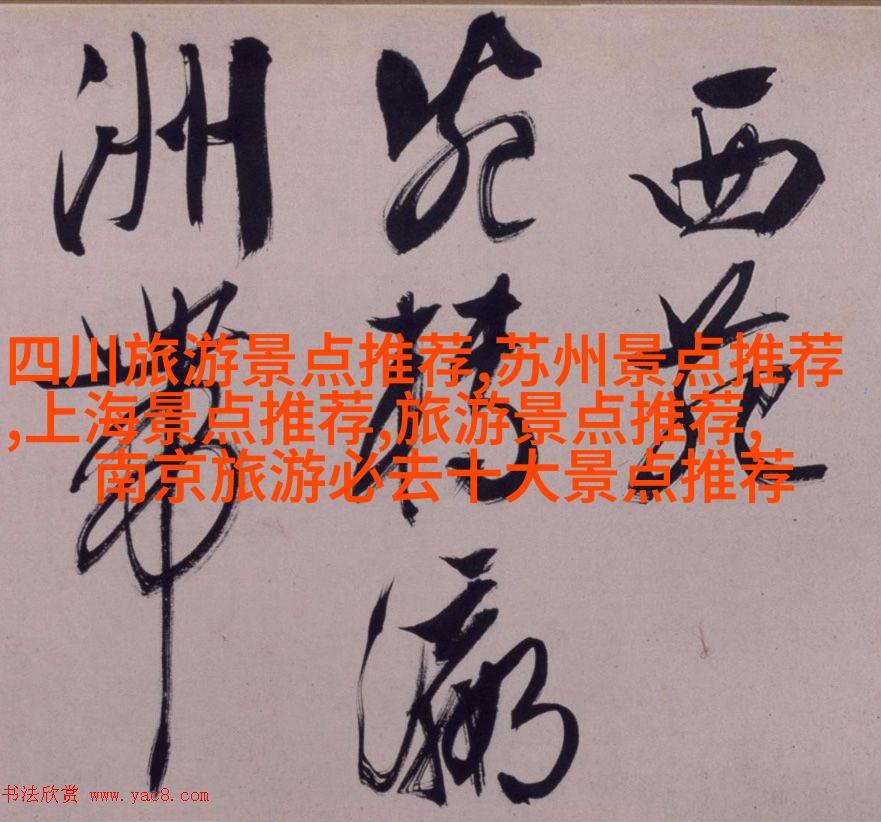 西苑
瀛
洲帶
四川旅游景点推荐,苏州景点推荐
,上海景点推荐,旅游景点推荐,
南京旅游必去十大景点推荐
书法欣赏 www.yac8.com